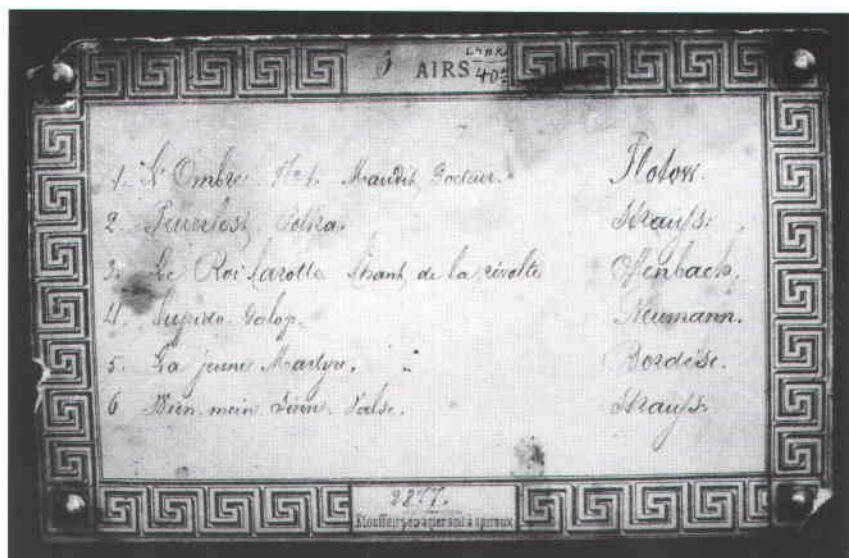 6 AIRS 40
1. L'Ombre No 1. Maudit Docteur. Flotow.
2. Feuerfest, Polka. Strauss.
3. Le Roi Carotte Chant de la révolte Offenbach.
4. Cupido Galop. Neumann.
5. La jeune Martyre. " Bordèse.
6 Wien mein Sinn Valse. Strauss.
2877.
Etouffoirs en acier soit à spiraux